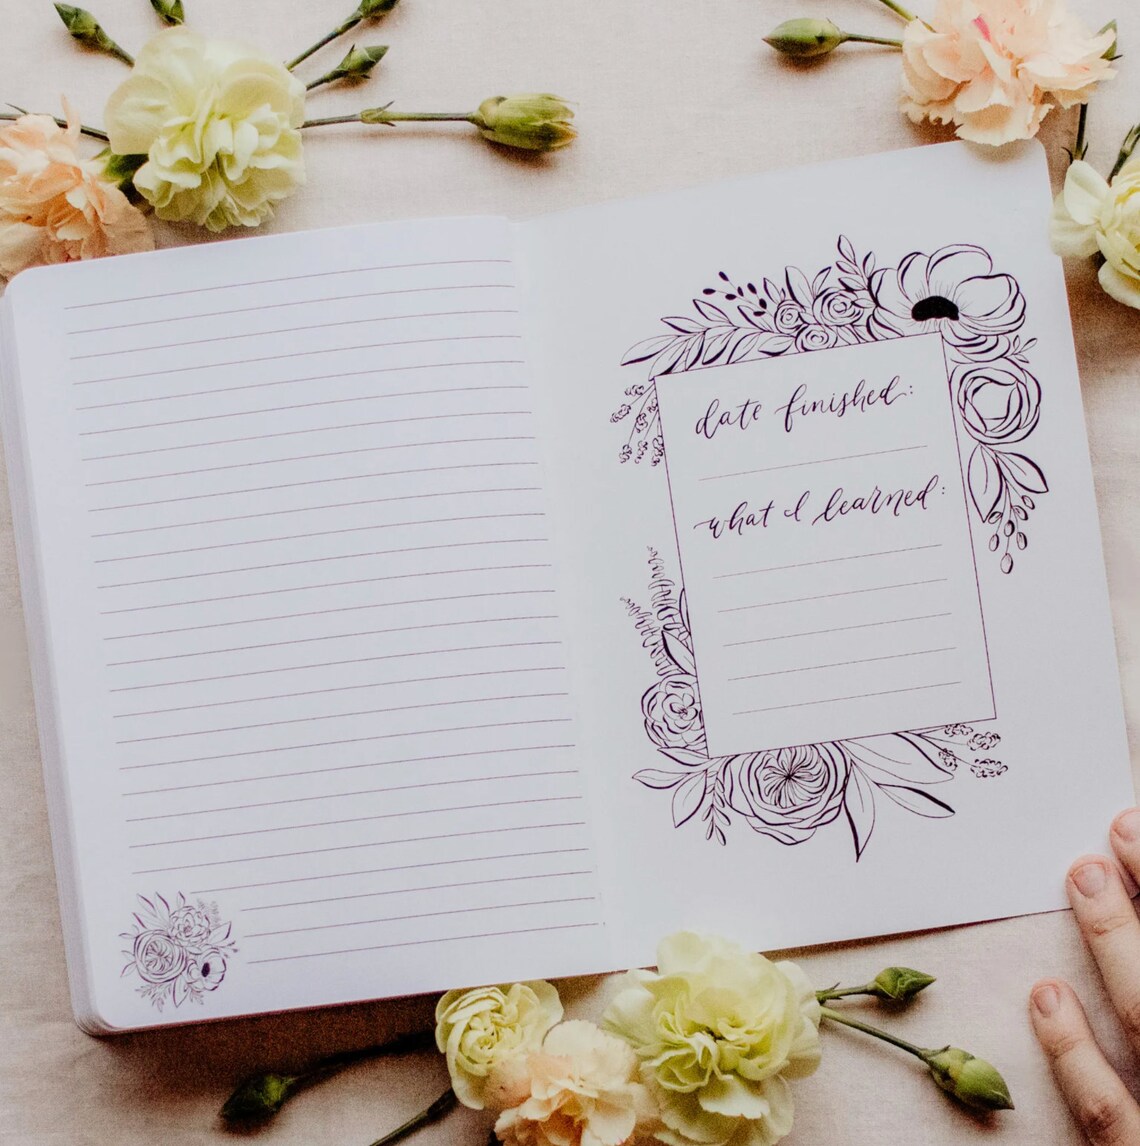 date finished:
what I learned: